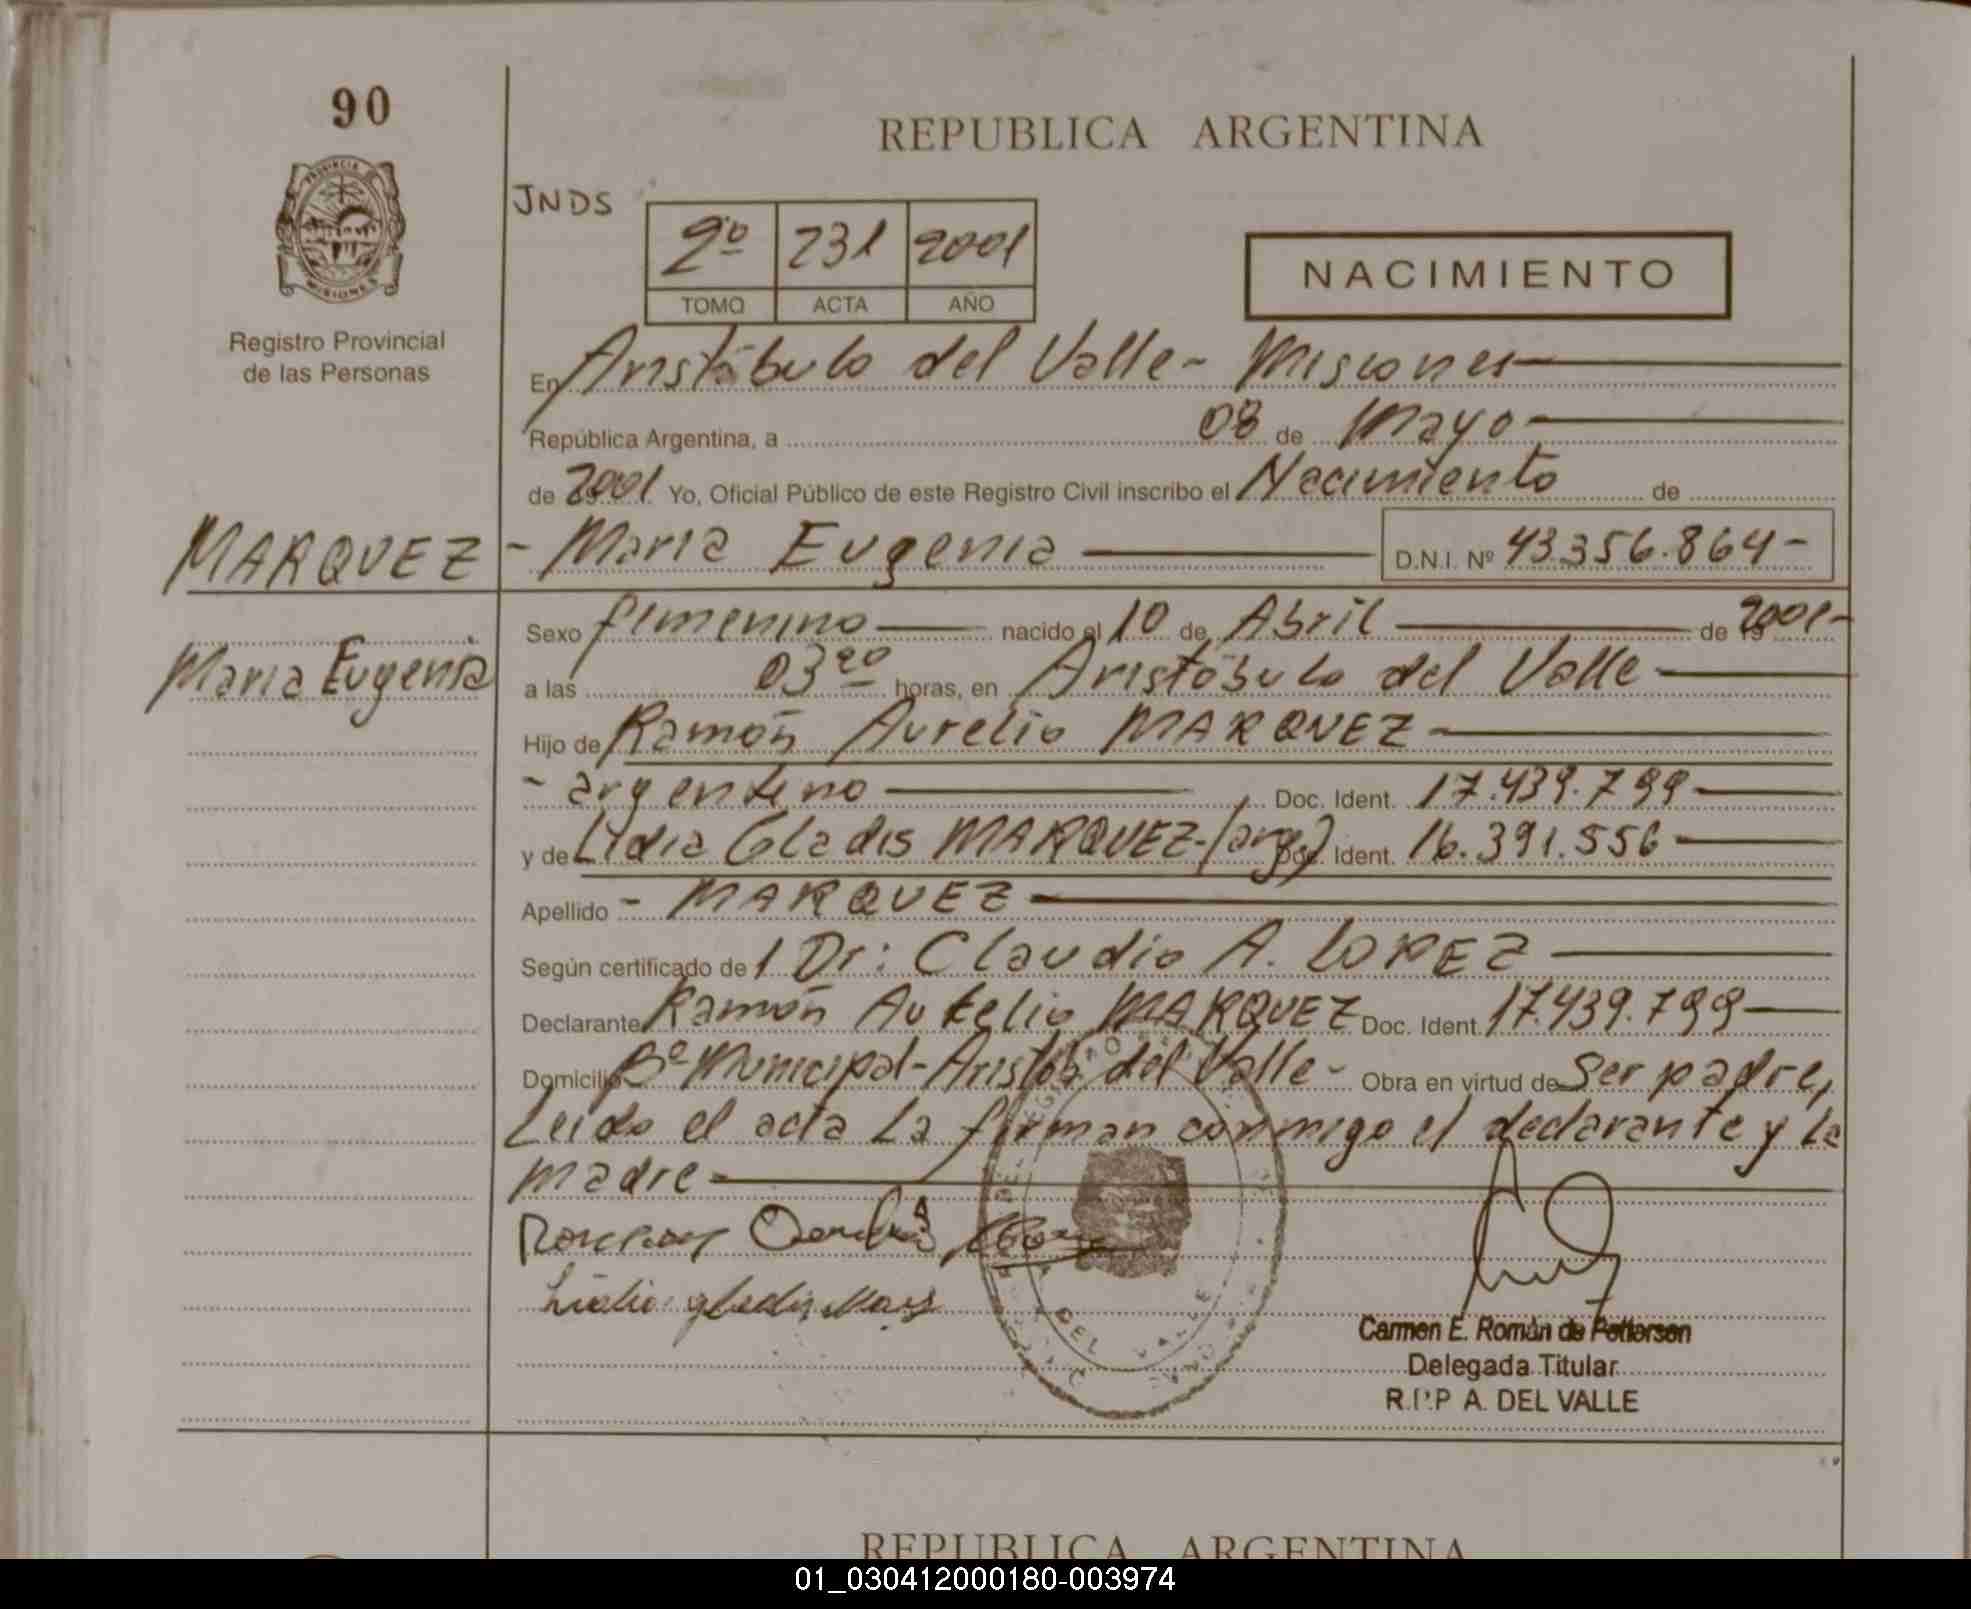 90
REPUBLICA ARGENTINA
PROVINCIA DE
MISIONES
Registro Provincial
de las Personas
JNDS
2º 231 2001
TOMO ACTA AÑO
NACIMIENTO
En Aristóbulo del Valle - Misiones
República Argentina, a 08 de Mayo
de 2001 Yo, Oficial Público de este Registro Civil inscribo el Nacimiento de
MARQUEZ - Maria Eugenia D.N.I. Nº 43.356.864-
Maria Eugenia
Sexo femenino nacido el 10 de Abril de 2001-
a las 03 horas, en Aristóbulo del Valle
Hijo de Ramón Aurelio MARQUEZ
- argentino Doc. Ident. 17.439.799
y de Lidia Gladis MARQUEZ-(arg.) Doc. Ident. 16.391.556
Apellido - MARQUEZ
Según certificado de 1 Dr: Claudio A. LOPEZ
Declarante Ramón Aurelio MARQUEZ Doc. Ident. 17.439.799
Domicilio Bº Municipal - Aristób del Valle - Obra en virtud de Ser padre,
Leido el acta la firman conmigo el declarante y la
madre
Carmen E. Román de Pettersen
Delegada Titular
R.P.P A. DEL VALLE
DEL VALLE
REPUBLICA ARGENTINA
01_030412000180-003974